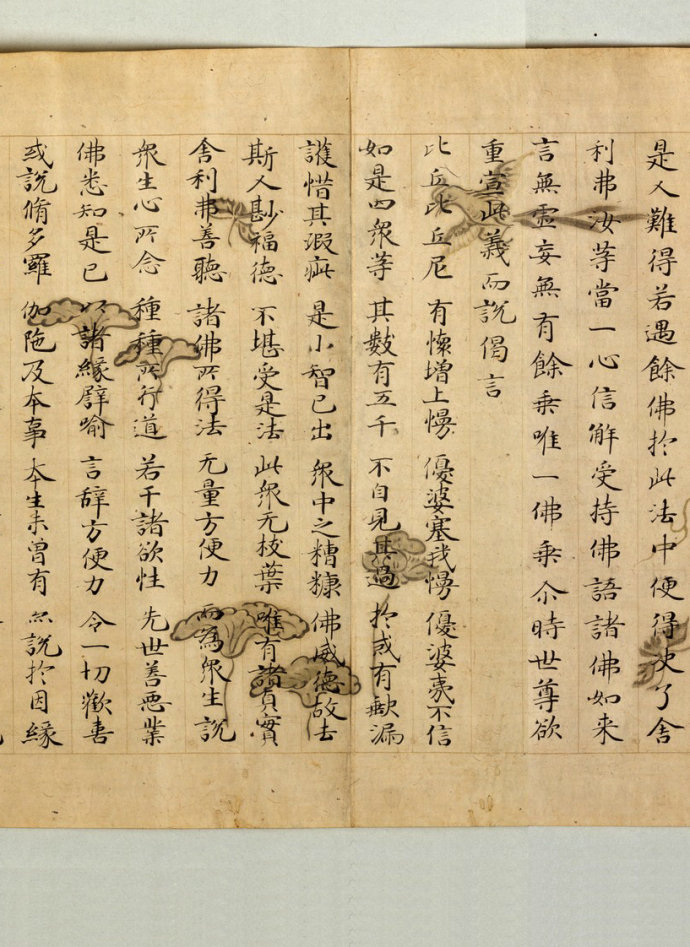 是人難得若遇餘佛於此法中便得决了舍
利弗汝等當一心信解受持佛語諸佛如来
言無虚妄無有餘乗唯一佛乗尒時世尊欲
重宣此義而說偈言
比丘比丘尼 有懷增上慢 優婆塞我慢 優婆夷不信
如是四衆等 其數有五千 不自見其過 於戒有缺漏
護惜其瑕疵 是小智已出 衆中之糟糠 佛威德故去
斯人尠福德 不堪受是法 此衆无枝葉 唯有諸貞實
舎利弗善聽 諸佛所得法 无量方便力 而為衆生說
衆生心所念 種種所行道 若干諸欲性 先世善悪業
佛悉知是已 以諸緣譬喻 言辞方便力 令一切歡喜
或說脩多羅 伽陁及本事 本生未曽有 亦說於因緣